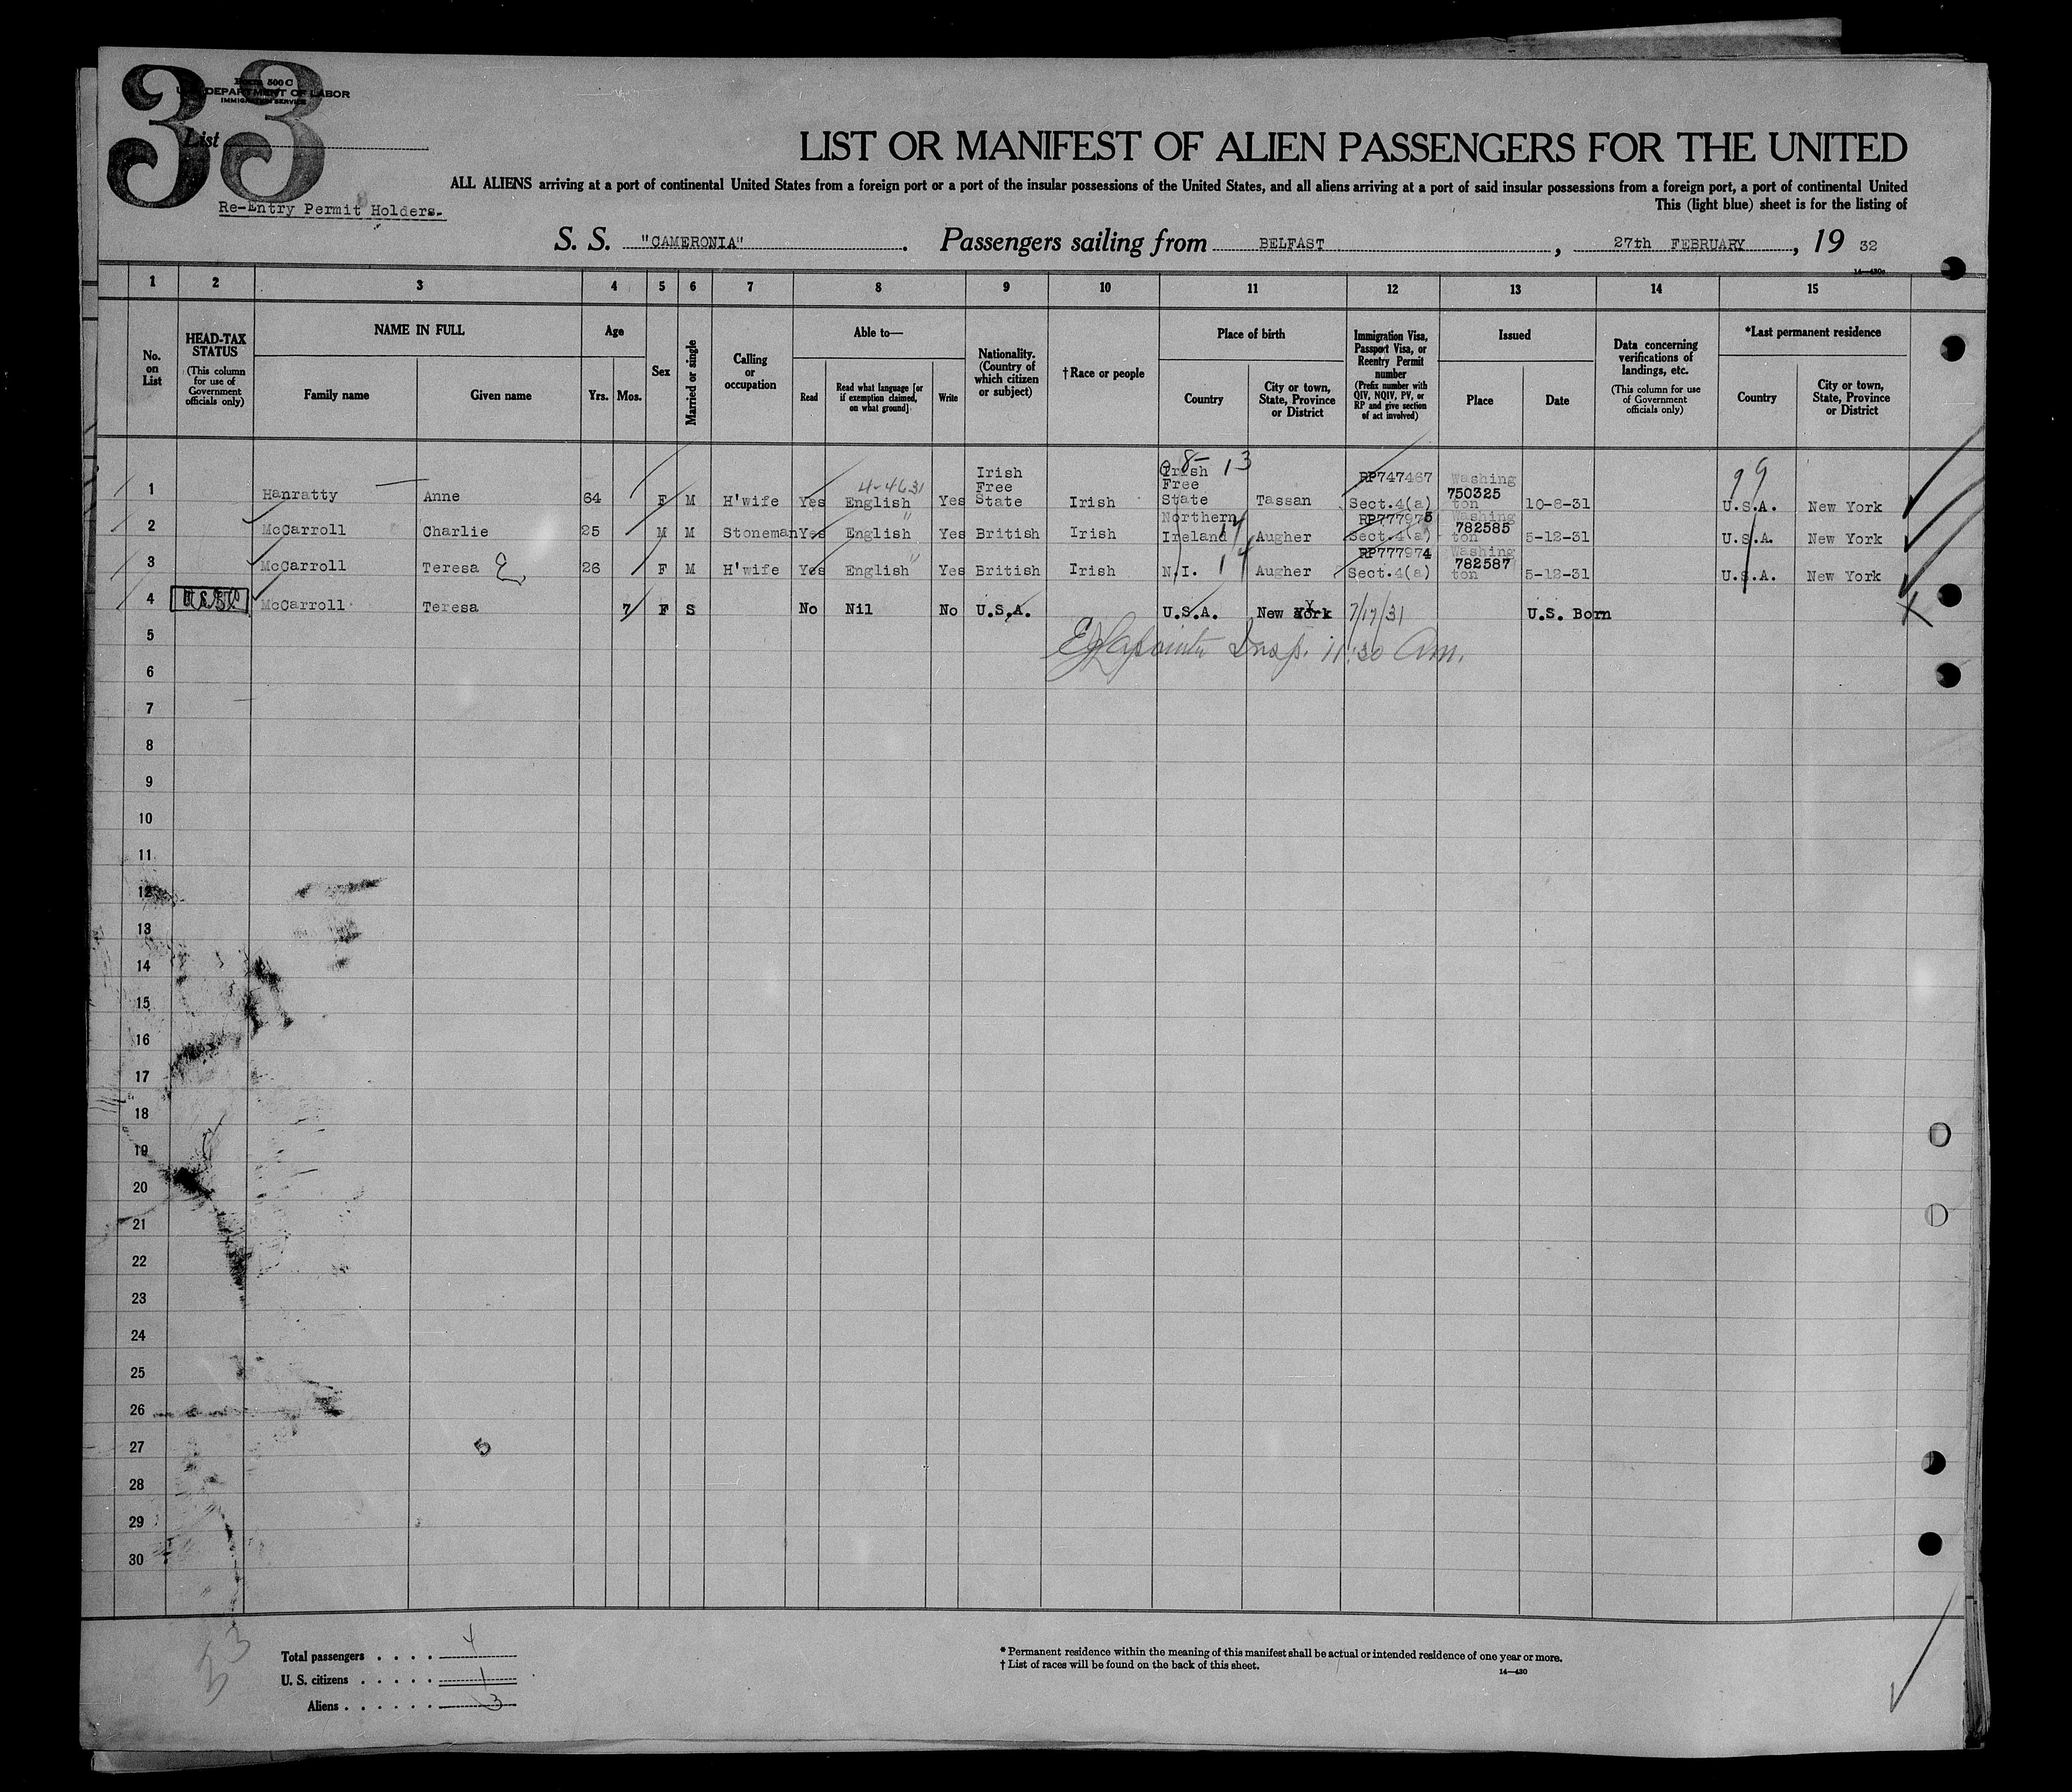 33
Form 500 C
U. S. DEPARTMENT OF LABOR
IMMIGRATION SERVICE
List
LIST OR MANIFEST OF ALIEN PASSENGERS FOR THE UNITED
ALL ALIENS arriving at a port of continental United States from a foreign port or a port of the insular possessions of the United States, and all aliens arriving at a port of said insular possessions from a foreign port, a port of continental United
This (light blue) sheet is for the listing of
Re-Entry Permit Holders.
S. S. "CAMERONIA". Passengers sailing from BELFAST, 27th FEBRUARY, 19 32
14—430c
1 2 3 4 5 6 7 8 9 10 11 12 13 14 15
No. on List
HEAD-TAX STATUS
(This column for use of Government officials only)
NAME IN FULL
Family name Given name
Age
Yrs. Mos.
Sex
Married or single
Calling or occupation
Able to—
Read
Read what language [or if exemption claimed, on what ground]
Write
Nationality. (Country of which citizen or subject)
†Race or people
Place of birth
Country
City or town, State, Province or District
Immigration Visa, Passport Visa, or Reentry Permit number
(Prefix number with QIV, NQIV, PV, or RP and give section of act involved)
Issued
Place Date
Data concerning verifications of landings, etc.
(This column for use of Government officials only)
*Last permanent residence
Country
City or town, State, Province or District
8- 13
99
4-4631
1 Hanratty Anne 64 F M H'wife Yes English Yes Irish Free State Irish Irish Free State Tassan RP747467 Sect.4(a) Washington 750325 10-8-31 U.S.A. New York
2 McCarroll Charlie 25 M M Stoneman Yes English " Yes British Irish Northern Ireland 14 Augher RP777975 Sect.4(a) Washington 782585 5-12-31 U.S.A. New York
3 McCarroll Teresa E 26 F M H'wife Yes English " Yes British Irish N.I. 14 Augher RP777974 Sect.4(a) Washington 782587 5-12-31 U.S.A. New York
4 McCarroll Teresa 7 F S No Nil No U.S.A. U.S.A. New York 7/17/31 U.S. Born
Insp. 11:30 Am.
5
6
7
8
9
10
11
12
13
14
15
16
17
18
19
20
21
22
23
24
25
26
27
5
28
29
30
33
Total passengers . . . . 4
U. S. citizens . . . . . 1
Aliens . . . . . . 3
* Permanent residence within the meaning of this manifest shall be actual or intended residence of one year or more.
† List of races will be found on the back of this sheet.
14—430